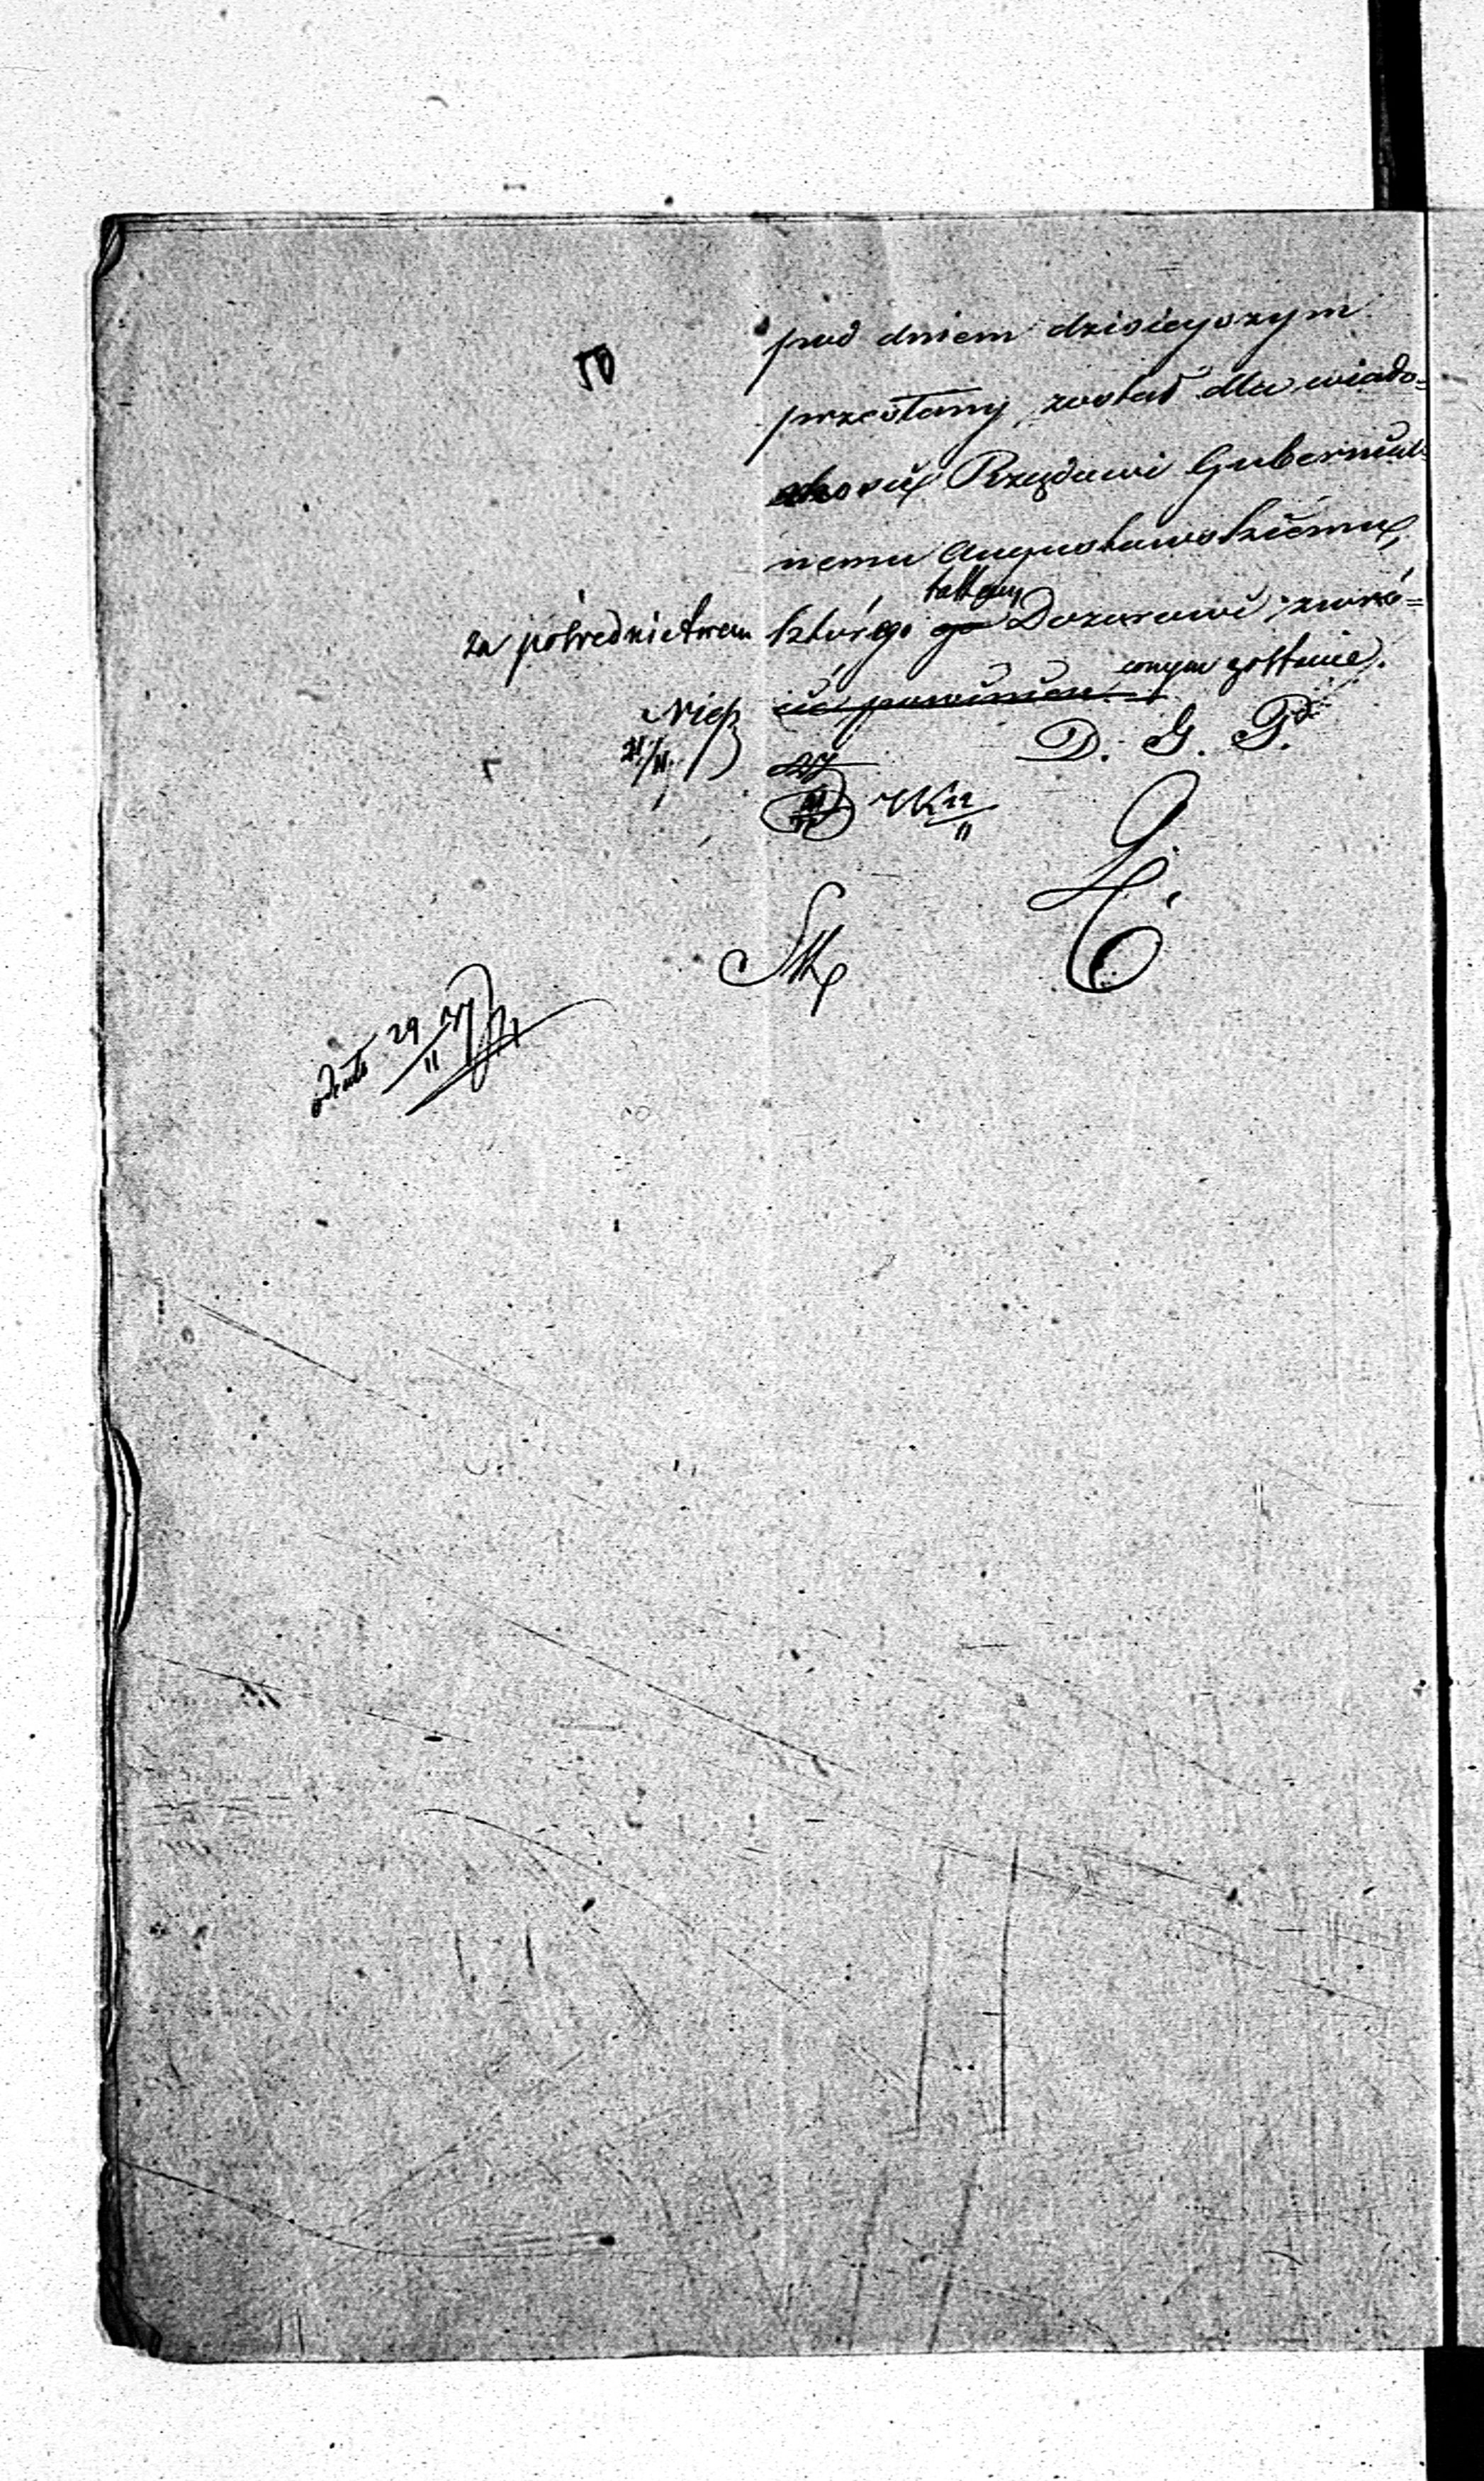 50
pod dniem dzisieyszym
przesłany, został dla wiado=
mości Rządowi Gubernial=
nemu Augustowskiemu,
takowy
za pośrednictwem którego go Dozorowi zwró=
conym zostanie.
cić powinien
D. G. P.
21/11
22/11
29/11